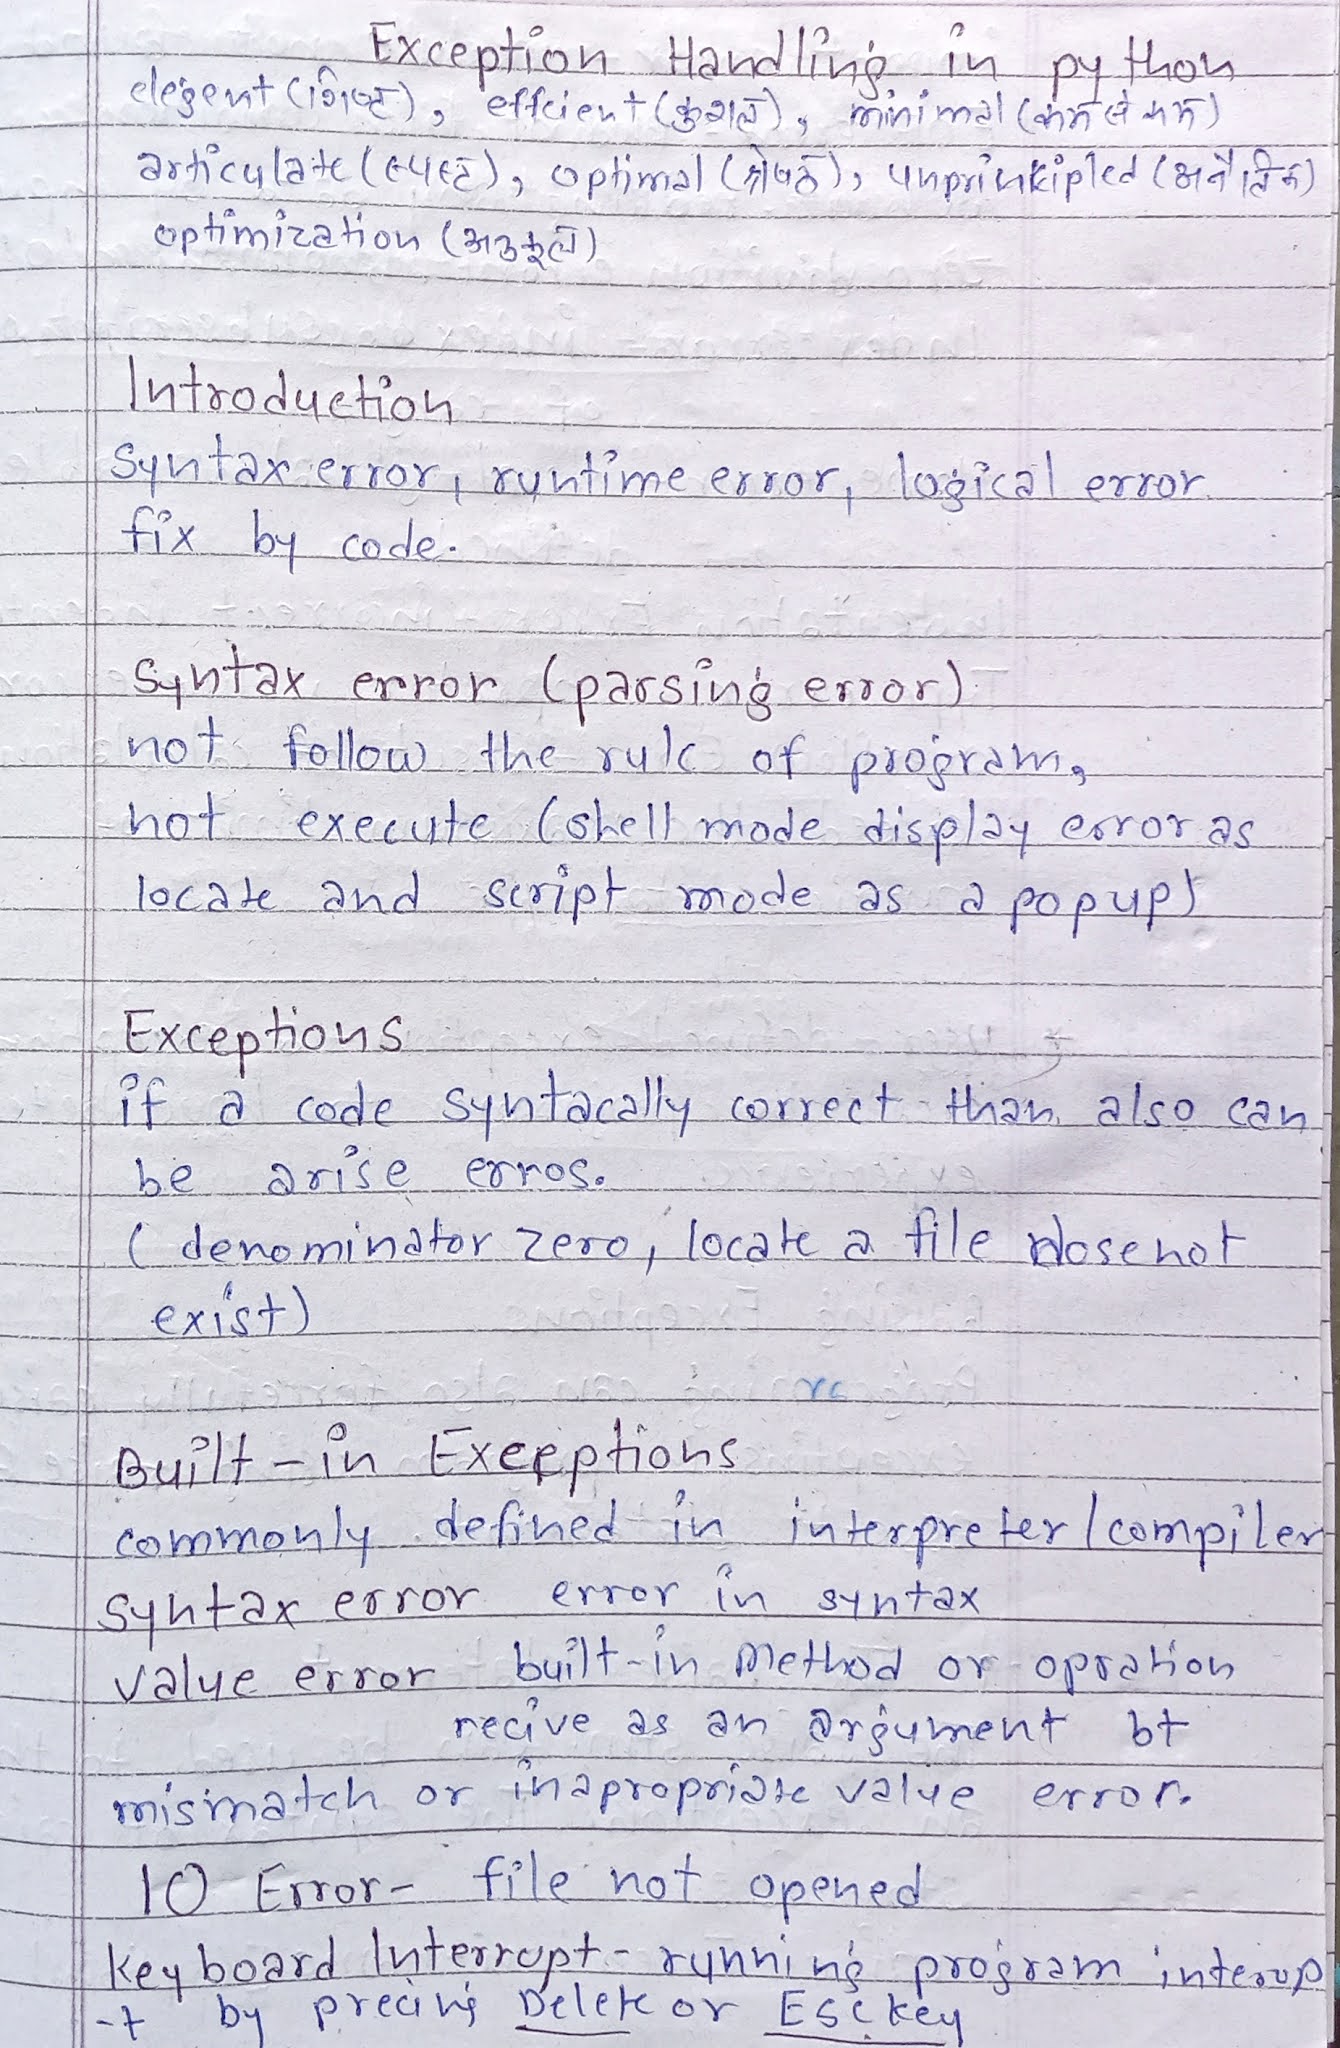 Exception Handling in python
elegent (शिष्ट), effcient (कुशल), minimal (कम से कम)
articulate (स्पष्ट), optimal (श्रेष्ठ), unprinkipled (अनैतिक)
optimization (अनुकूल)
Introduction
Syntax error, runtime error, logical error
fix by code.
Syntax error (parsing error)
not follow the rule of program,
not execute (shell mode display error as
locate and script mode as a popup)
Exceptions
if a code syntacally correct than also can
be arise erros.
( denominator zero, locate a file dose not
exist)
rc
Built-in Exceptions
commonly defined in interpreter/compiler
syntax error error in syntax
value error built-in method or opration
recive as an argument bt
mismatch or inapropriate value error.
IO Error- file not opened
Keyboard Interrupt- running program interup
-t by precing Delete or Esc key